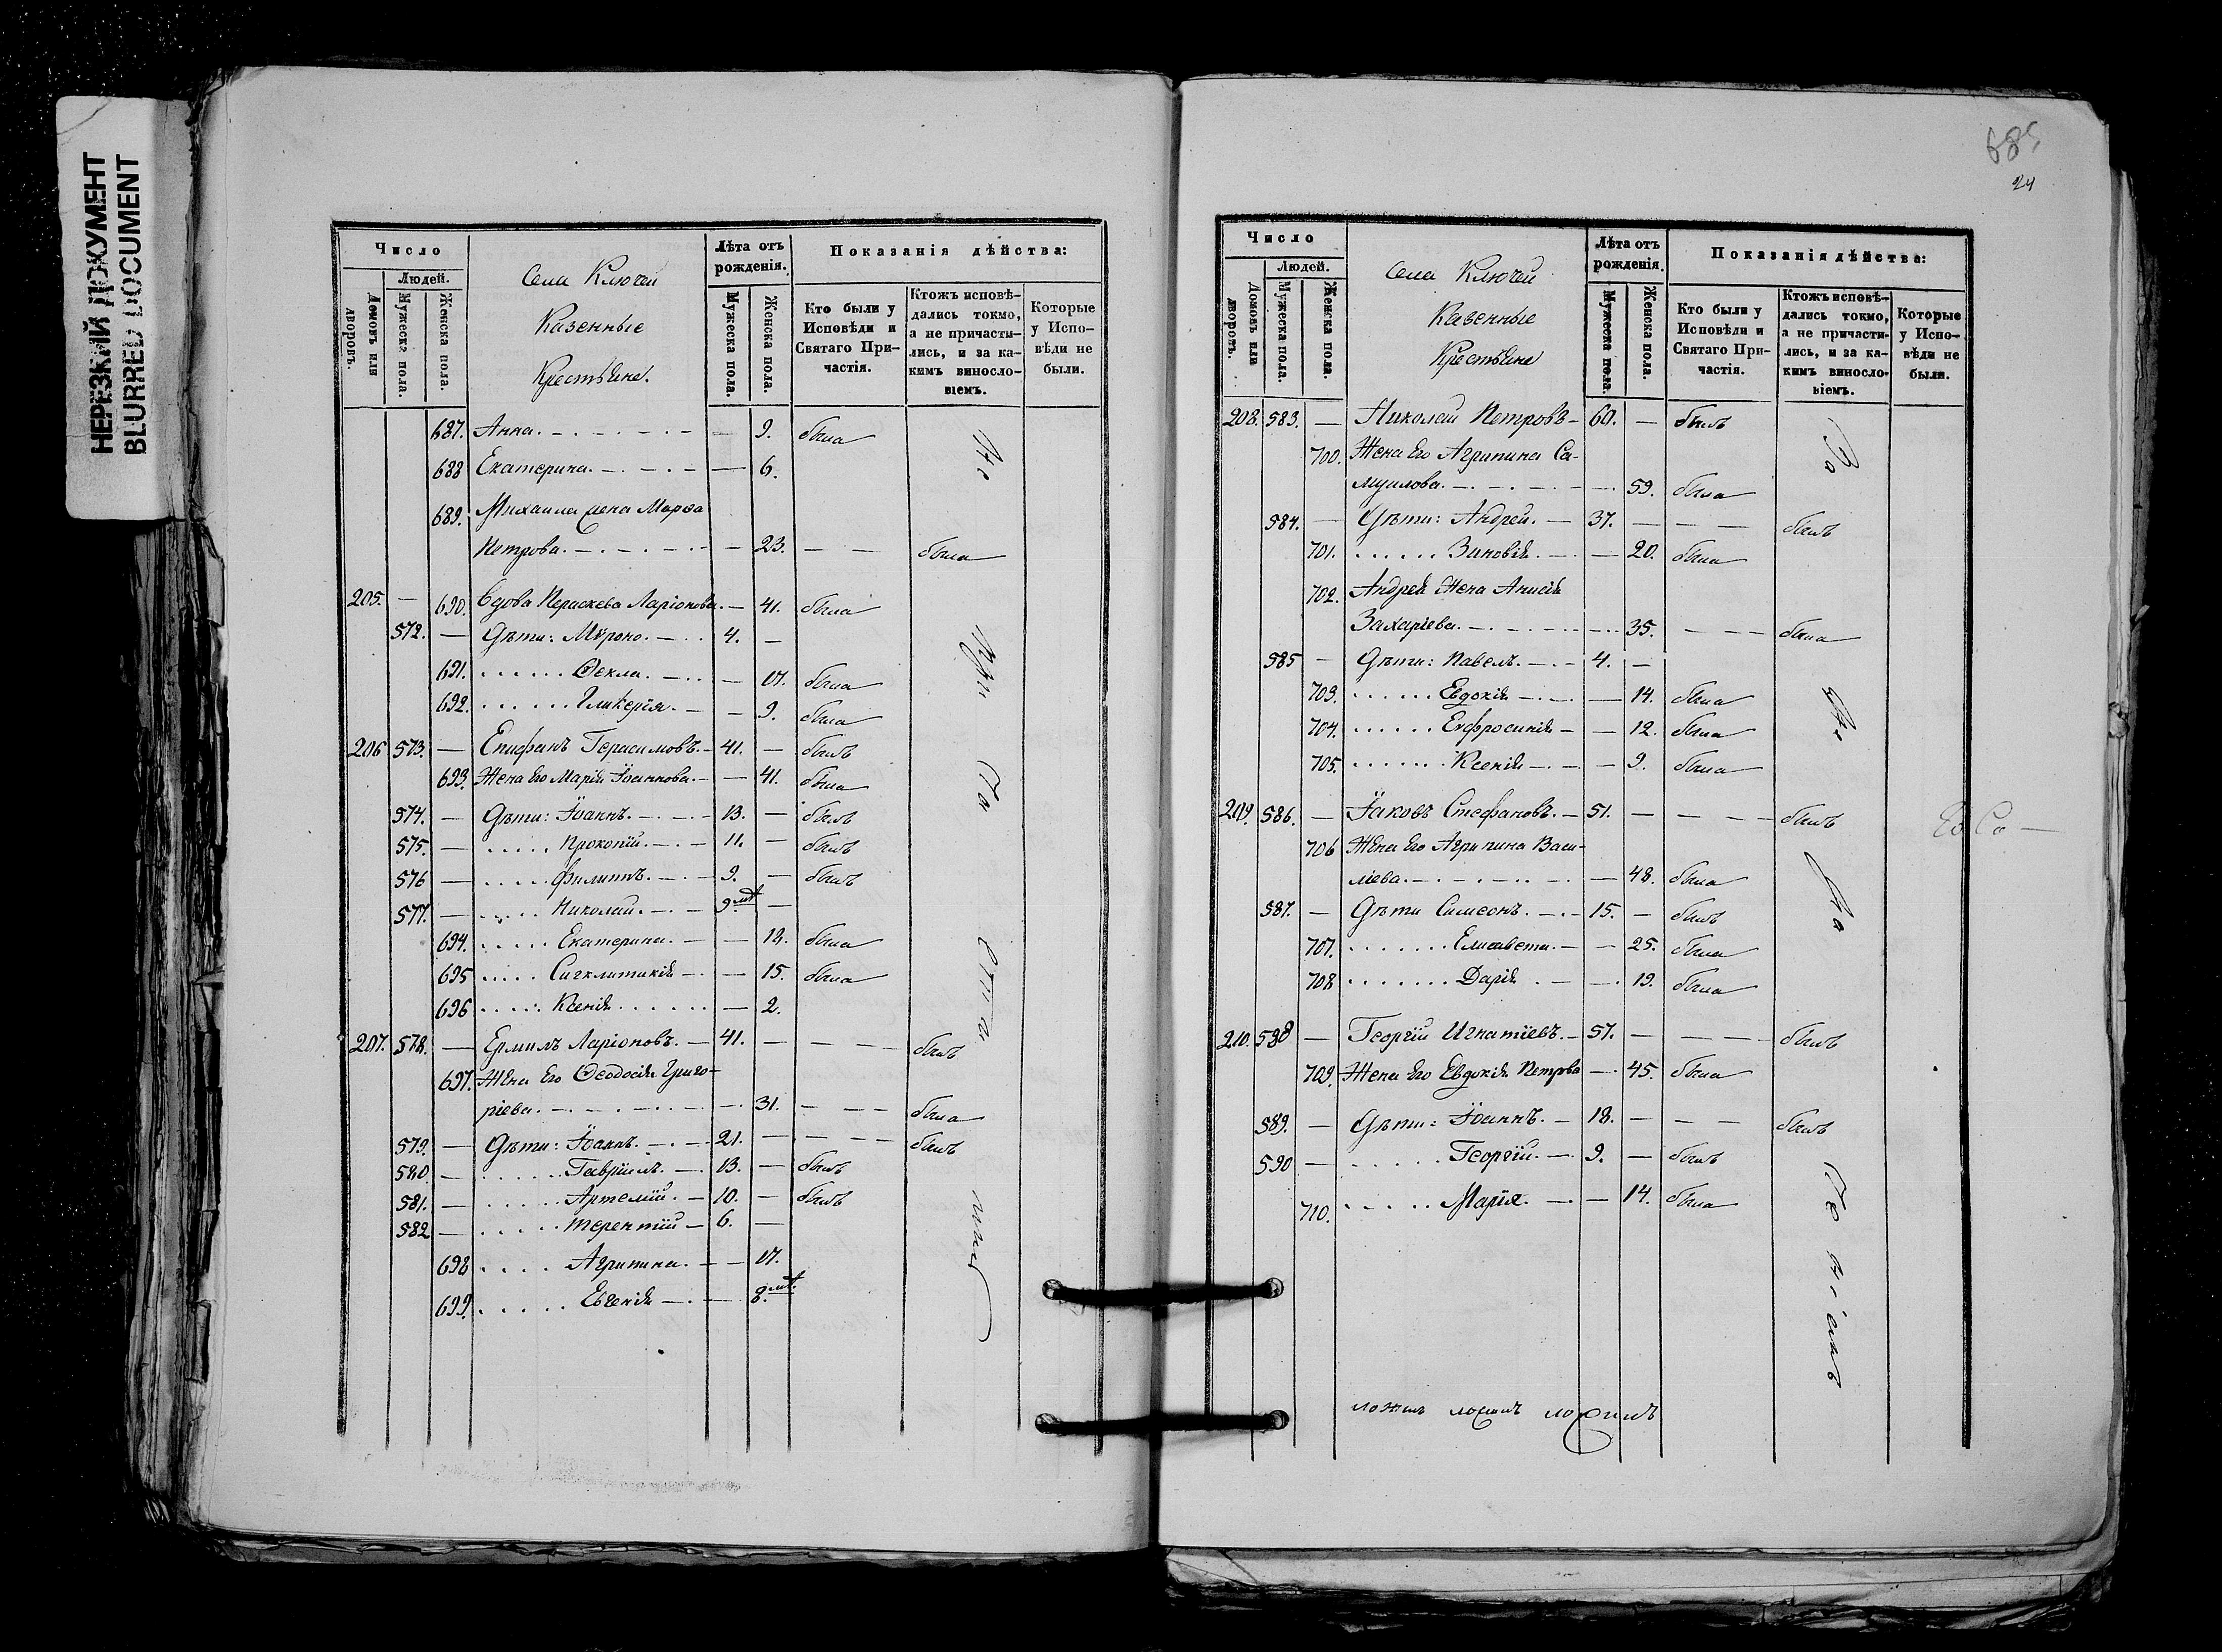 НЕРЕЗКИЙ ДОКУМЕНТ
BLURRED DOCUMENT
Число
Людей.
Домовъ или дворовъ.
Мужеска пола.
Женска пола.
Села Ключей
Казенные
Крестьяне.
Лѣта отъ рожденія.
Мужеска пола.
Женска пола.
Показанія дѣйства:
Кто были у Исповѣди и Святаго Причастія.
Ктожъ исповѣдались токмо, а не причастились, и за какимъ винословіемъ.
Которые у Исповѣди не были.
687. Анна. — 9. была
688 Екатерина. — 6.
689. Михаила жена Марѳа
Петрова. — 23. — — была
205. — 690. Вдова Параскева Ларіонова. — 41. была
572. — Дѣти: Мѵронъ. — 4. —
691. Ѳекла. — 17. была
692. Гликерія. — 9. была
206 573. — Епифанъ Герасимовъ. — 41. — былъ
693. Жена Его Марія Іоаннова. — 41. была
574. — Дѣти: Іоаннъ. — 13. — былъ
575. — Прокопій. — 11. — былъ
576 — Филиппъ. — 9. — былъ
577. — Николай. — 9. мѣ —
694. Екатерина. — 18. была
695 Сигклитикія — 15. была
696 Ксенія — 2.
207. 578. — Ермилъ Ларіоновъ. — 41. — — — былъ
697. Жена Его Ѳеодосія Григо-
ріева. — 31. — — — была
579. — Дѣти: Іоаннъ. — 21. — — — былъ
580 — Гавріилъ. — 13. — былъ
581. — Артемій. — 10. — былъ
582 — Терентій — 6. —
698 Агрипина. — 17.
699. Евгенія — 8. мѣ.
685
24
Число
Людей.
Домовъ или дворовъ.
Мужеска пола.
Женска пола.
Села Ключей
Казенные
Крестьяне
Лѣта отъ рожденія.
Мужеска пола.
Женска пола.
Показанія дѣйства:
Кто были у Исповѣди и Святаго Причастія.
Ктожъ исповѣдались токмо, а не причастились, и за какимъ винословіемъ.
Которые у Исповѣди не были.
208. 583. — Николай Петровъ — 60. — былъ
700. Жена Его Агрипина Са-
муилова. — 59. была
584. — Дѣти: Андрей. — 37. — — — былъ
701. Зиновія. — 20. была
702. Андрея Жена Анисія
Захаріева. — 35. — — — была
585 — Дѣти: Павелъ. — 4. —
703. Евдокія — 14. была
704. Евфросинія — 12. была
705. Ксенія — 9. была
209. 586. — Іаковъ Стефановъ. — 51. — — — былъ
706 Жена Его Агрипина Васи-
ліева. — 48. была
587. — Дѣти Симеонъ. — 15. — былъ
707. Елисавета. — 25. была
708 Дарія — 19. была
210. 588 — Георгій Игнатіевъ. — 57. — — — былъ
709. Жена Его Евдокія Петрова — 45. была
589. — Дѣти: Іоаннъ. — 18. — — — былъ
590 — Георгій. — 9. — былъ
710. Марія. — 14. была